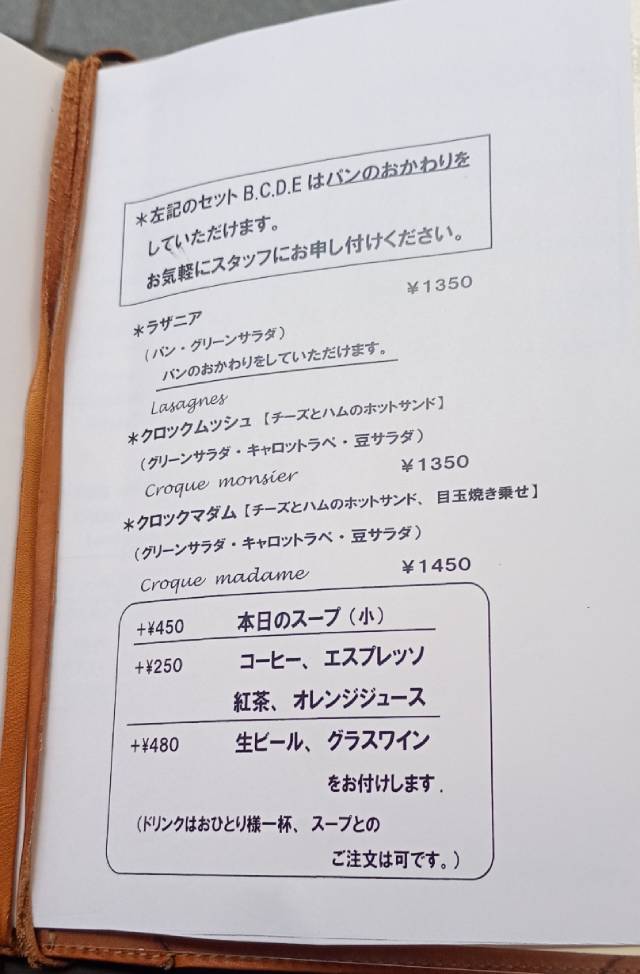 ＊左記のセット B.C.D.E はパンのおかわりを
していただけます。
お気軽にスタッフにお申し付けください。
＊ラザニア ￥1350
（パン・グリーンサラダ）
パンのおかわりをしていただけます。
Lasagnes
＊クロックムッシュ【チーズとハムのホットサンド】
（グリーンサラダ・キャロットラペ・豆サラダ）
Croque monsier ￥1350
＊クロックマダム【チーズとハムのホットサンド、目玉焼き乗せ】
（グリーンサラダ・キャロットラペ・豆サラダ）
Croque madame ￥1450
+¥450 本日のスープ（小）
+¥250 コーヒー、エスプレッソ
紅茶、オレンジジュース
+¥480 生ビール、グラスワイン
をお付けします．
（ドリンクはおひとり様一杯、スープとの
ご注文は可です。）